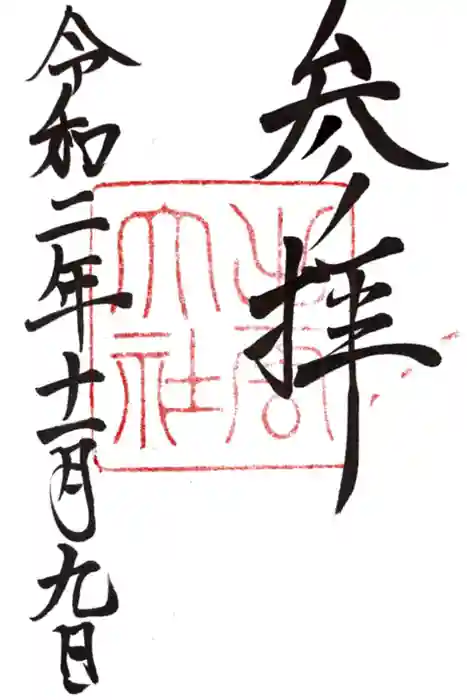 参拝
出雲
大社
令和二年十一月九日